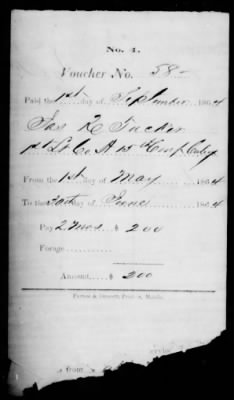 No. 4.
Voucher No. 58-
Paid the 1st day of September 1864
Jas K Tucker
1st Lt Co A 15th Conf Cavy
From the 1st day of May 1864
To the 30th day of June 1864
Pay 2 mos. $ 200
Forage
Amount $ 200
Farrow & Dennett, Print's, Mobile.
from